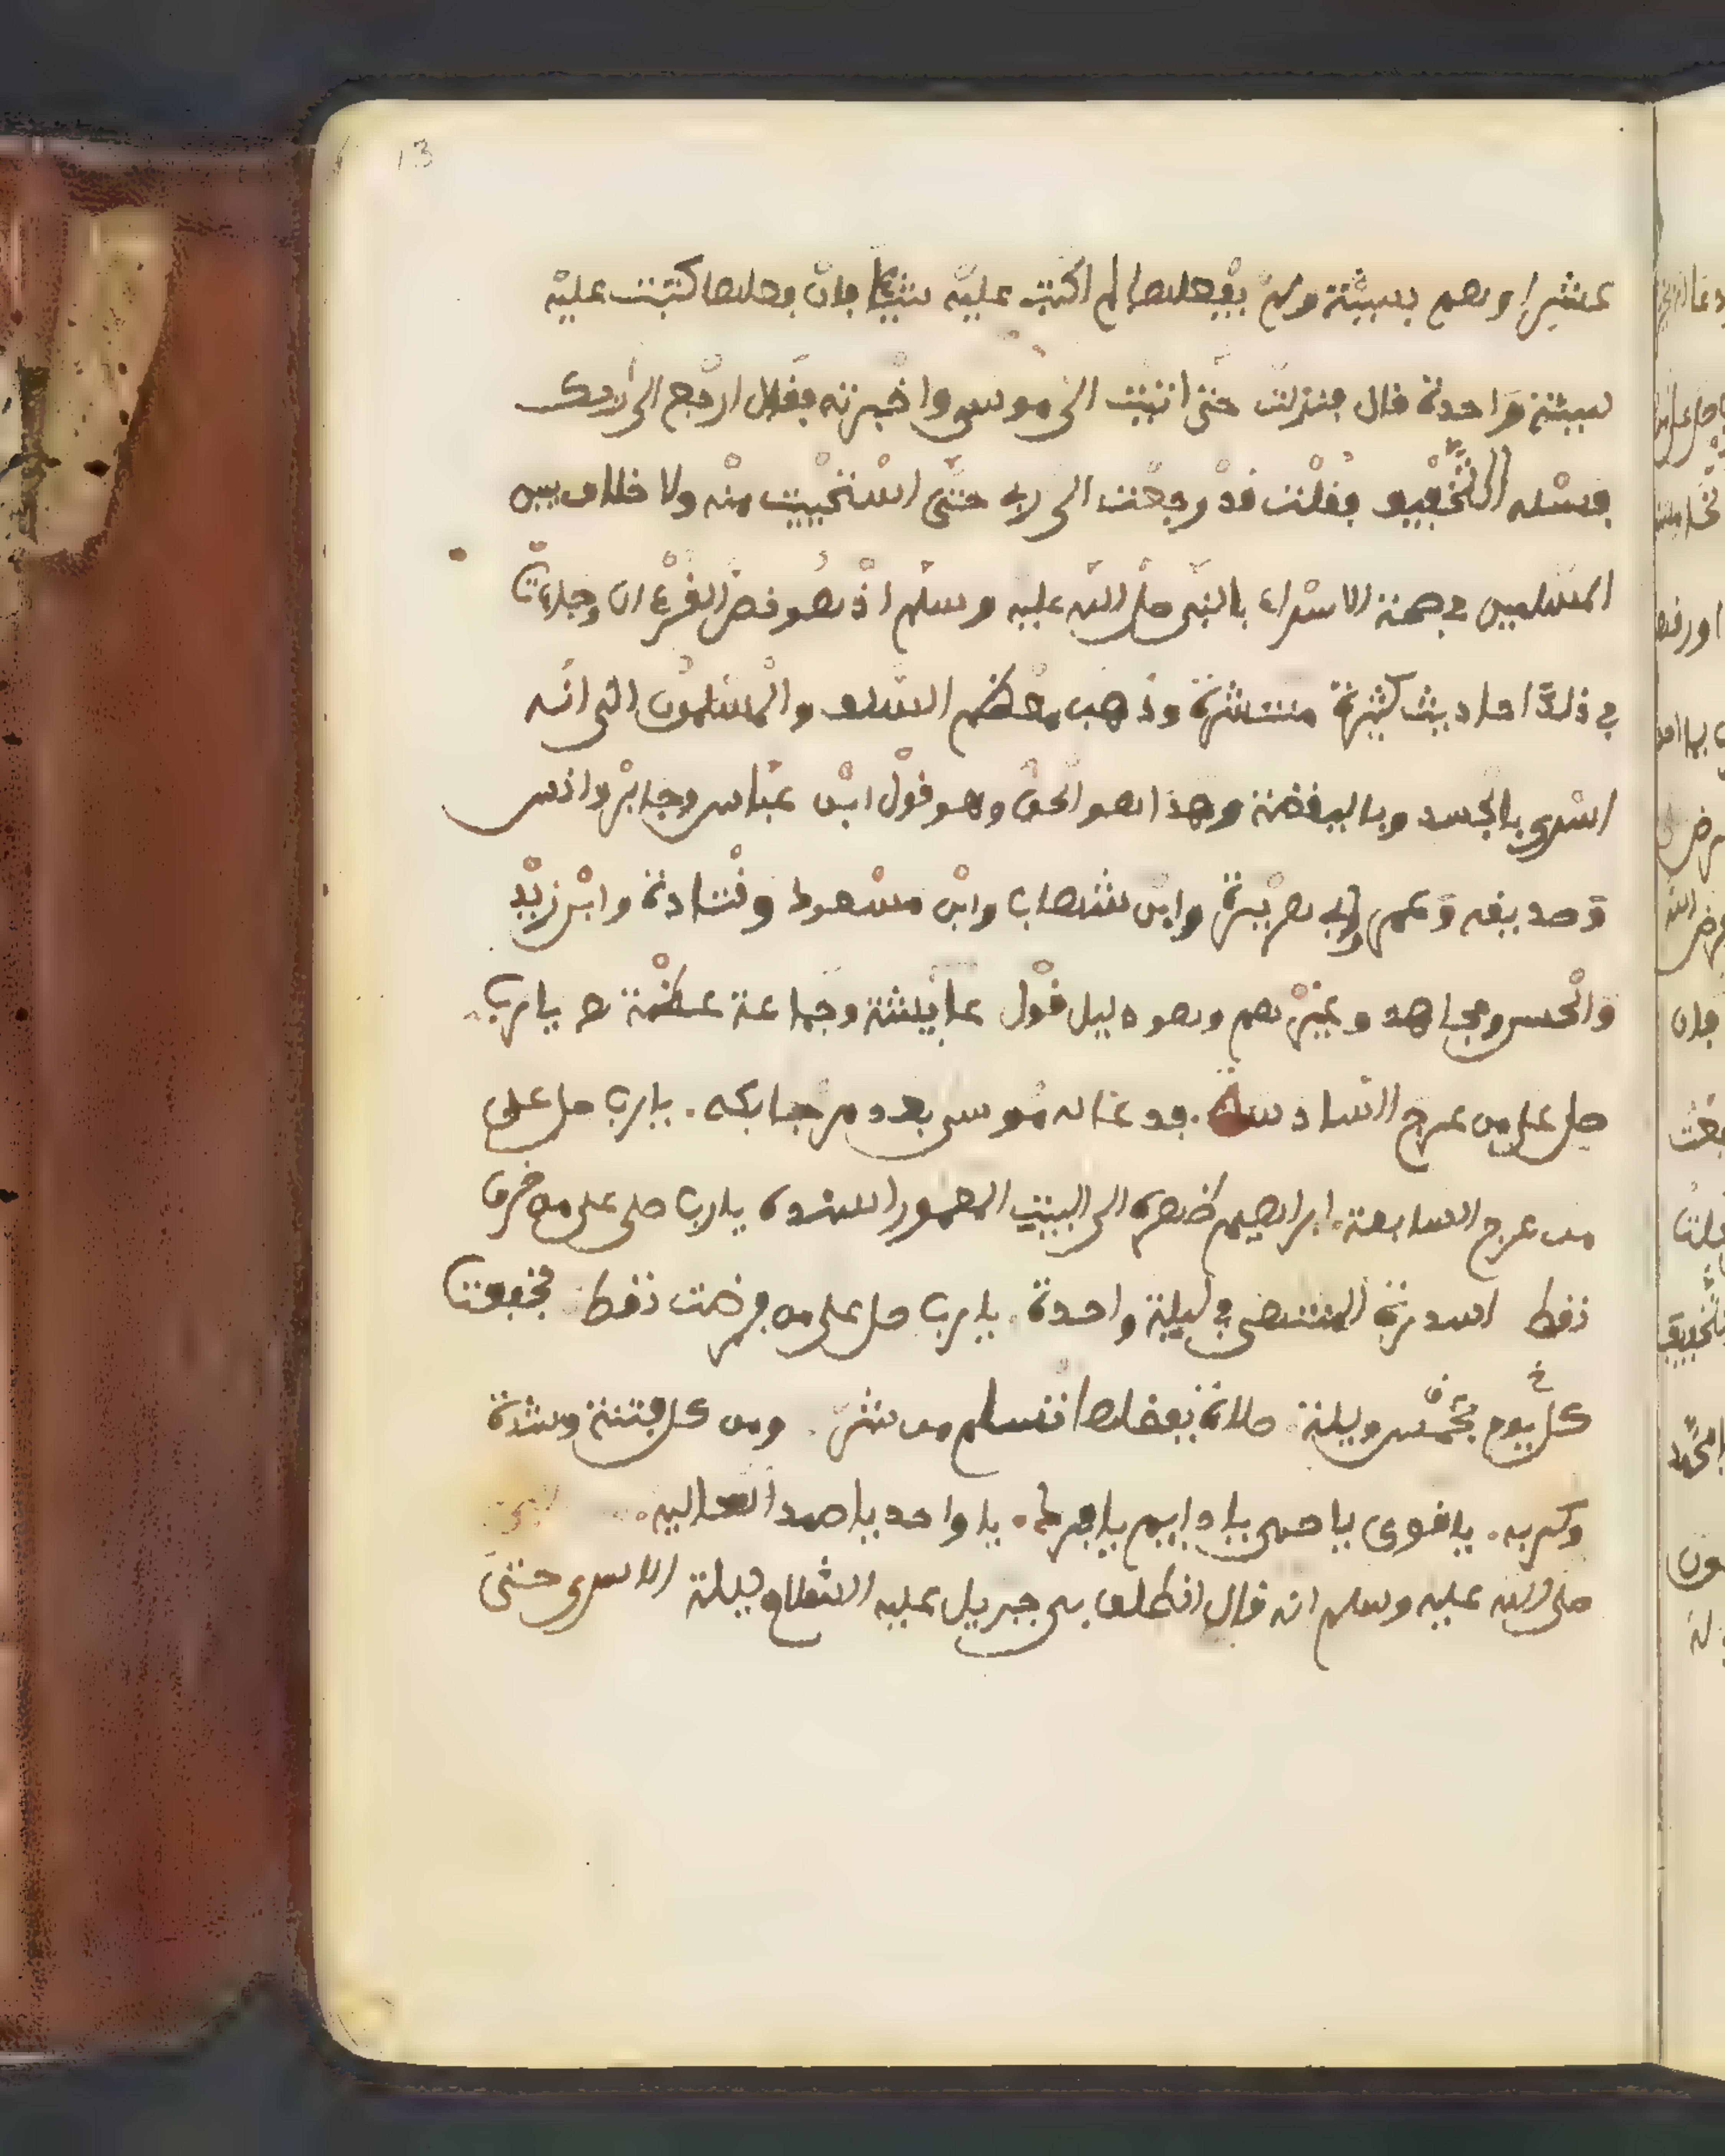 13
عشرا وهم بسيئة ولم يفعلها لم اكتب عليه شيئا فان فعلها كتبت عليه
سيئة واحدة قال فنزلت حتى انتيت الى موسى واخبرته فقال ارجع الى ربك
فسئله التخفيف فقلت قد رجعت الى ربه حتى استحييت منه ولا خلاف بين
المسلمين في صحة الاسراء بالنبي صلى الله عليه وسلم اذ هو نص القرءان وجاءت
في ذلك احاديث كثيرة منتشرة وذهب معظم السلف والمسلمون الى انه
اسرى بالجسد وباليقضة وهذا هو الحق وهو قول ابن عباس وجابر وانس
وحديفه وعمر وابه هريرة وابن شهاب وابن مسعود وقتادة وابن زيد
والحسن ومجاهد وغيرهم وهو دليل قول عايشة وجماعة عظمة يارب
صل على من عرج السادسة. فدعا له موسى بعد مرحبا بكه. يارب صل على
من عرج السابعة. ابراهيم ظهره الى البيت المعمور اسنده يارب صلى على من خرق
نفط السدرة المنتهى في ليلة واحدة. يارب صل على من فرضت نفط فخففت
كل يوم بخمس وليلة. صلاة بفضلها نسلم من شر. ومن كل فتنة وشدة
وكربه. يا قوي يا حي يا دايم يا فرد. يا واحد يا صمد
صلى الله عليه وسلم انه قال انطلق بى جبريل عليه السلام ليلة الاسرى حتى